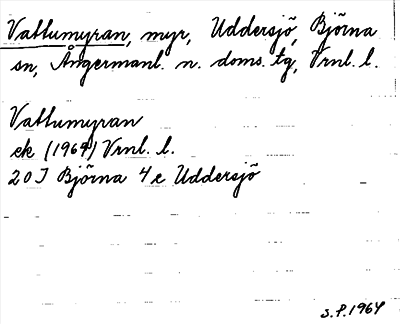 Vattumyran, myr, Uddersjö, Björna
sn, Ångermanl. n. doms. tg, Vrnl. l.
Vattumyran
ek (1964) Vrnl. l.
20 I Björna 4 e Uddersjö
S.P. 1964